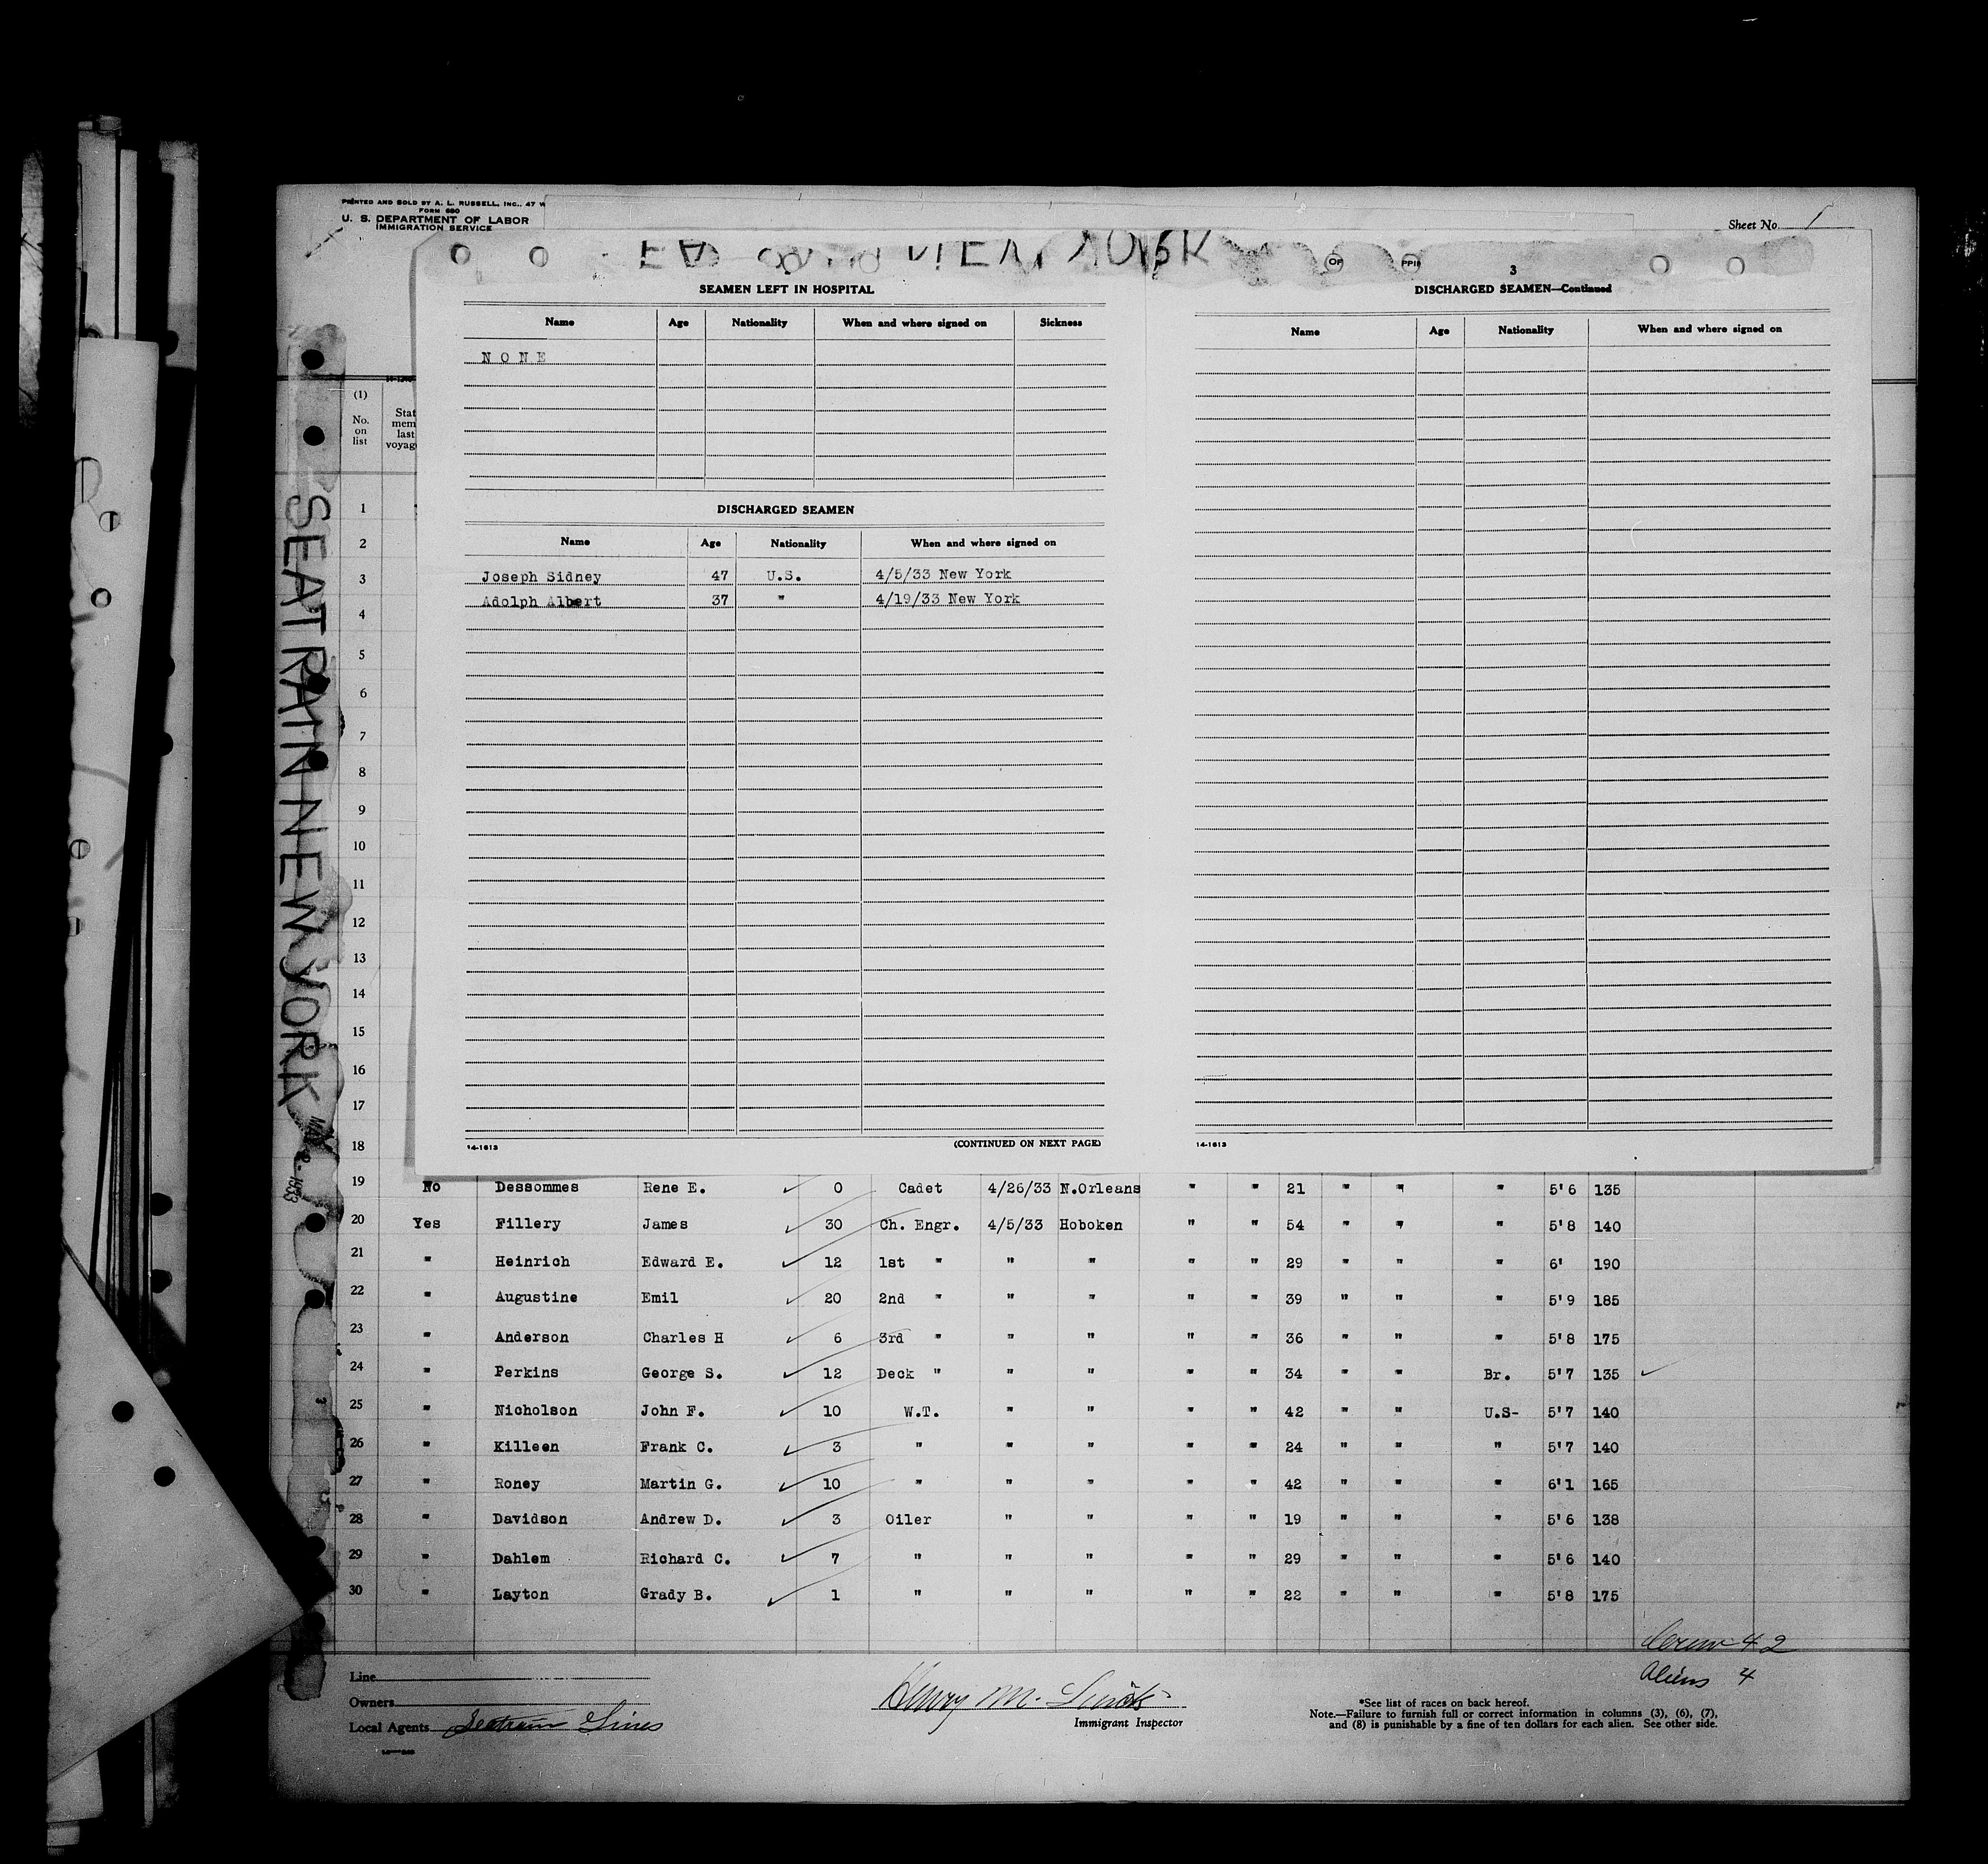 PRINTED AND SOLD BY A. L. RUSSELL, INC., 47 W
FORM 680
U. S. DEPARTMENT OF LABOR
IMMIGRATION SERVICE
Sheet No. 1
SEATRAIN NEW YORK
MAY 2 - 1933
NEW YORK
SEAMEN LEFT IN HOSPITAL
Name Age Nationality When and where signed on Sickness
N O N E
DISCHARGED SEAMEN
Name Age Nationality When and where signed on
Joseph Sidney 47 U.S. 4/5/33 New York
Adolph Albert 37 " 4/19/33 New York
14-1613 (CONTINUED ON NEXT PAGE)
3
DISCHARGED SEAMEN—Continued
Name Age Nationality When and where signed on
14-1613
(1)
No. on list
Stat
mem
last
voyag
1
2
3
4
5
6
7
8
9
10
11
12
13
14
15
16
17
18
19 No Dessommes Rene E. 0 Cadet 4/26/33 N.Orleans " " 21 " " " 5'6 135
20 Yes Fillery James 30 Ch. Engr. 4/5/33 Hoboken " " 54 " " " 5'8 140
21 " Heinrich Edward E. 12 1st " " " " " 29 " " " 6' 190
22 " Augustine Emil 20 2nd " " " " " 39 " " " 5'9 185
23 " Anderson Charles H 6 3rd " " " " " 36 " " " 5'8 175
24 " Perkins George S. 12 Deck " " " " " 34 " " Br. 5'7 135
25 " Nicholson John F. 10 W.T. " " " " 42 " " U.S- 5'7 140
26 " Killeen Frank C. 3 " " " " " 24 " " " 5'7 140
27 " Roney Martin G. 10 " " " " " 42 " " " 6'1 165
28 " Davidson Andrew D. 3 Oiler " " " " 19 " " " 5'6 138
29 " Dahlem Richard C. 7 " " " " " 29 " " " 5'6 140
30 " Layton Grady B. 1 " " " " " 22 " " " 5'8 175
Crew 42
Aliens 4
Line
Owners
Local Agents Seatrain Lines
Henry M.
Immigrant Inspector
*See list of races on back hereof.
Note.—Failure to furnish full or correct information in columns (3), (6), (7),
and (8) is punishable by a fine of ten dollars for each alien. See other side.